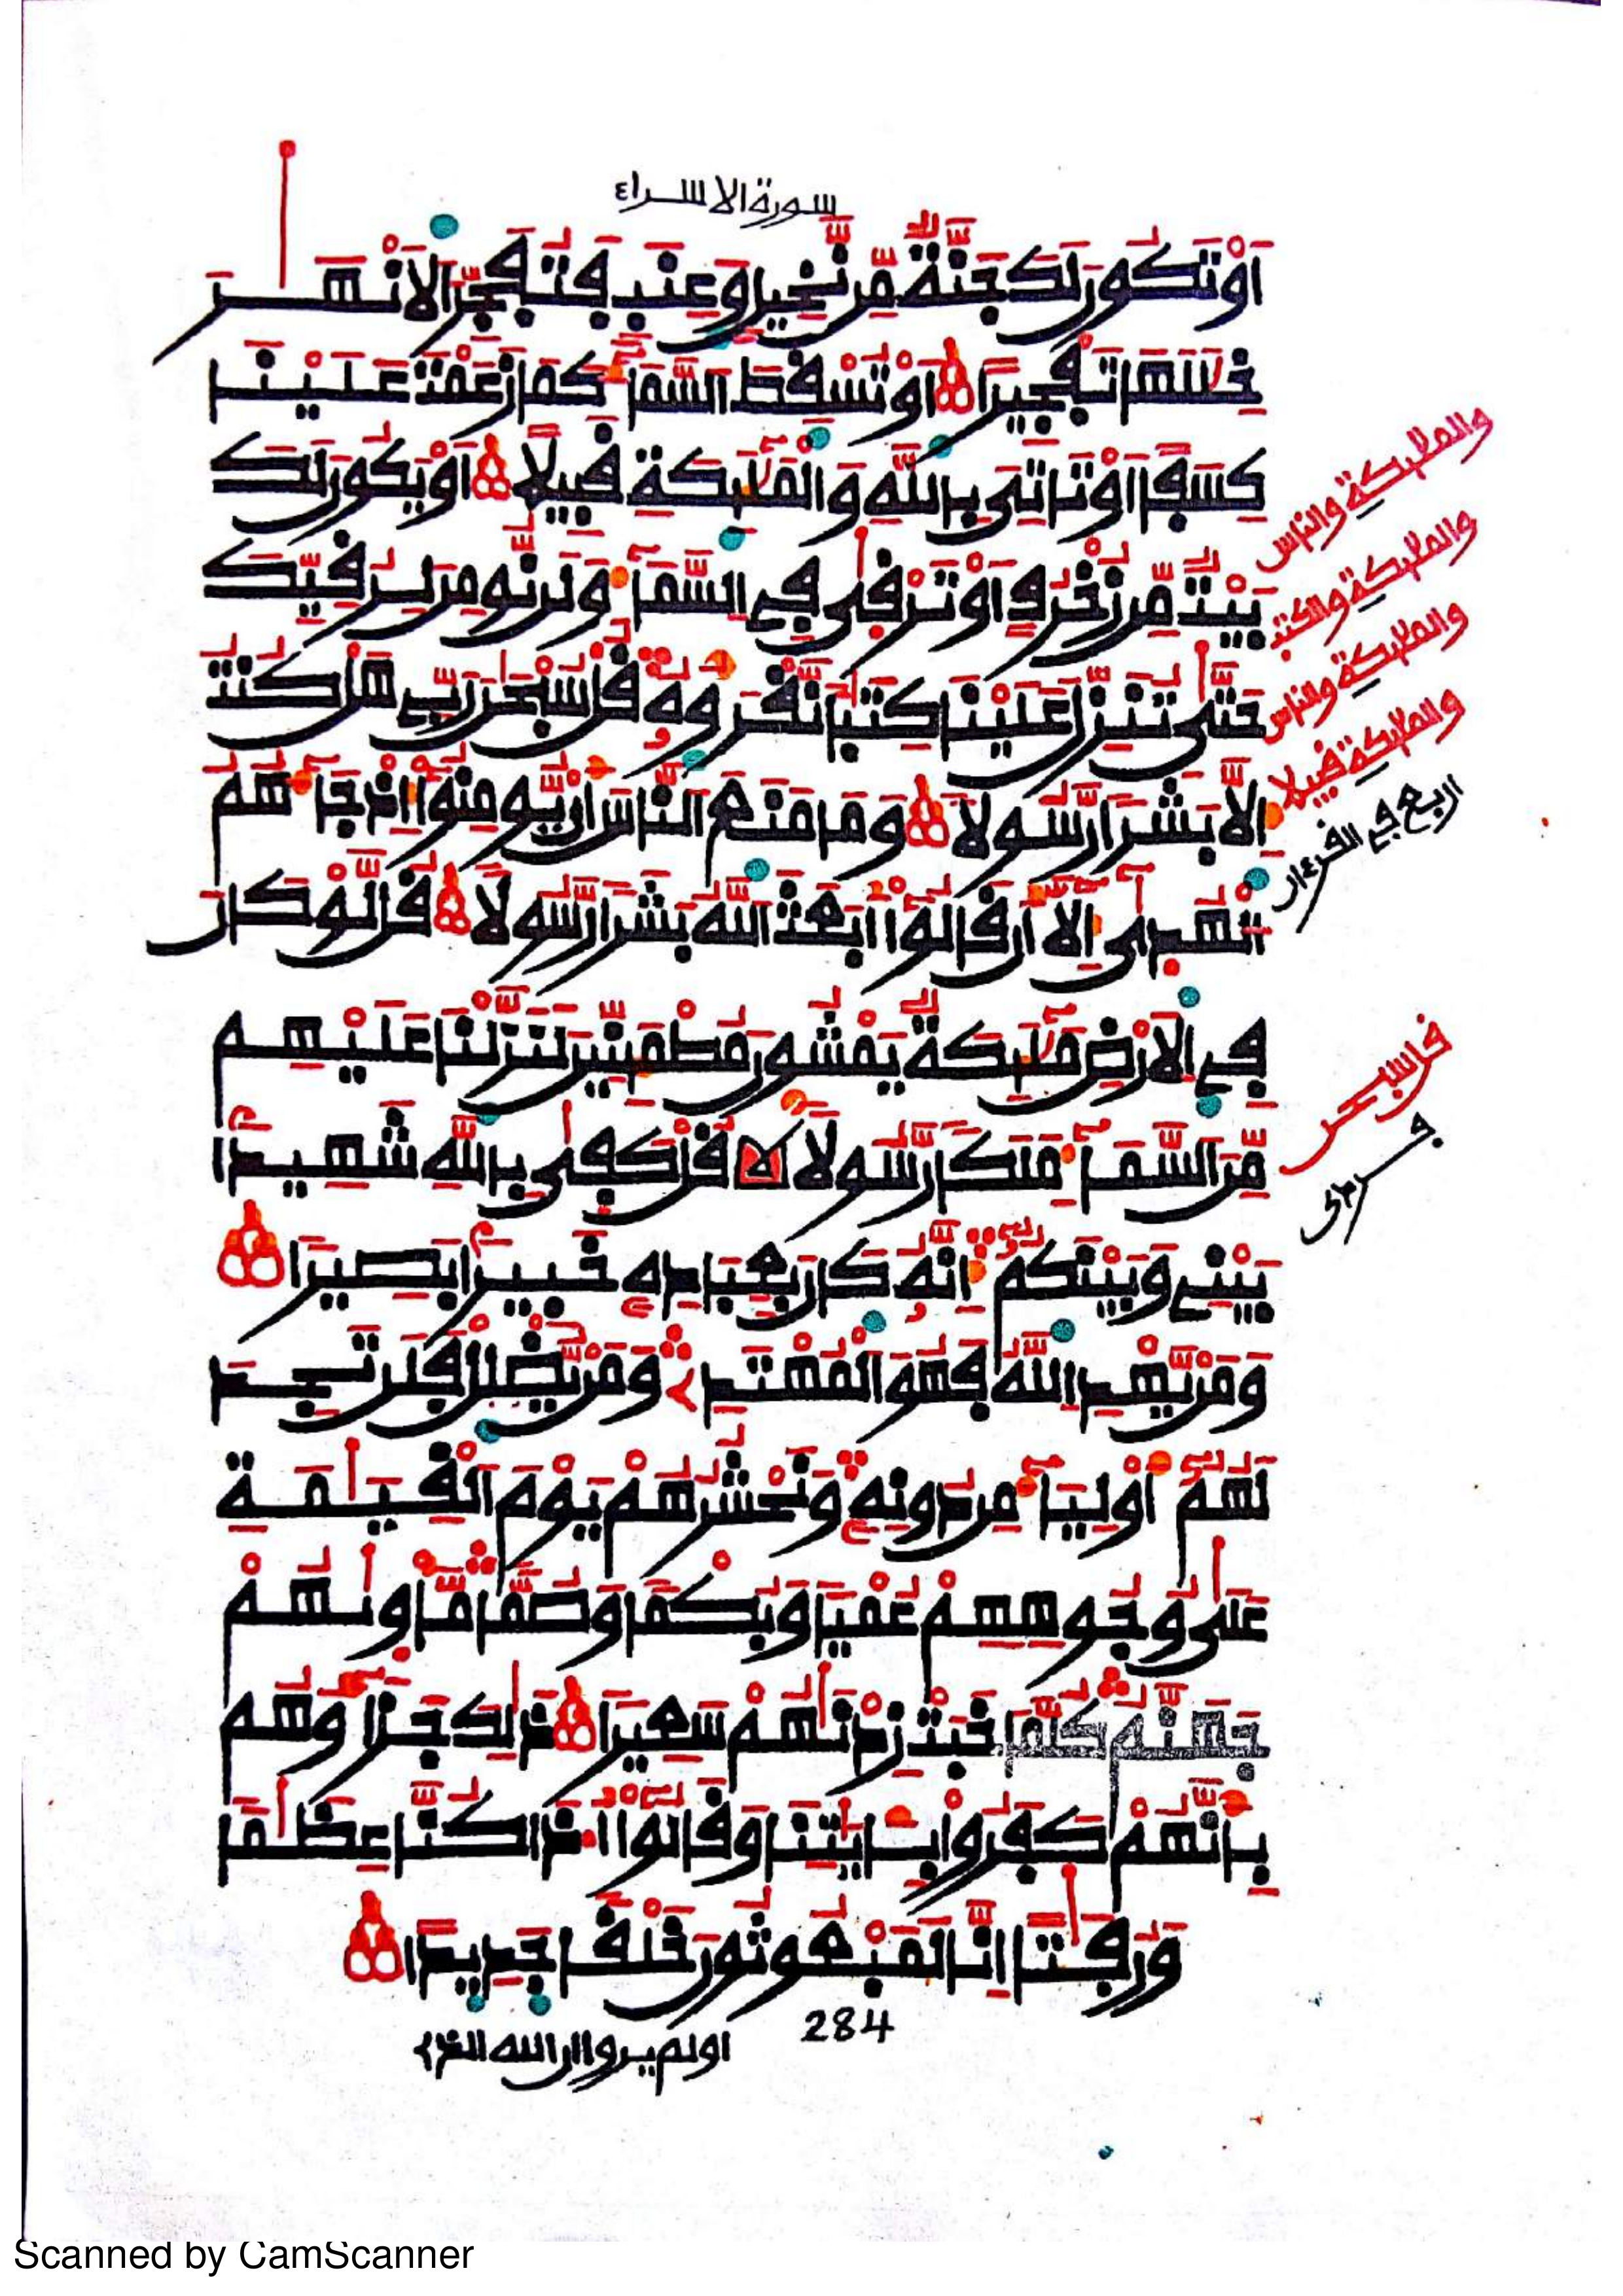 سورة الاسراء
اَوْ تَكُونَ لَكَ جَنَّةٌ مِّن نَّخِيلٍ وَعِنَبٍ فَتُفَجِّرَ الْاَنْهَٰرَ
خِلَٰلَهَا تَفْجِيرًا اَوْ تُسْقِطَ السَّمَآءَ كَمَا زَعَمْتَ عَلَيْنَا
كِسَفًا اَوْ تَاتِيَ بِاللَّهِ وَالْمَلَٰٓئِكَةِ قَبِيلًا اَوْ يَكُونَ لَكَ
بَيْتٌ مِّن زُخْرُفٍ اَوْ تَرْقَىٰ فِي السَّمَآءِ وَلَن نُّومِنَ لِرُقِيِّكَ
حَتَّىٰ تُنَزِّلَ عَلَيْنَا كِتَٰبًا نَّقْرَؤُهُ قُلْ سُبْحَٰنَ رَبِّي هَلْ كُنتُ
اِلَّا بَشَرًا رَّسُولًا وَمَا مَنَعَ النَّاسَ أَن يُّومِنُوٓا إِذْ جَآءَهُمُ
الْهُدَىٰٓ إِلَّآ أَن قَالُوٓا أَبَعَثَ اللَّهُ بَشَرًا رَّسُولًا قُل لَّوْ كَانَ
فِي الْاَرْضِ مَلَٰٓئِكَةٌ يَمْشُونَ مُطْمَئِنِّينَ لَنَزَّلْنَا عَلَيْهِم
مِّنَ السَّمَآءِ مَلَكًا رَّسُولًا قُلْ كَفَىٰ بِاللَّهِ شَهِيدًا
بَيْنِي وَبَيْنَكُمُۥٓ إِنَّهُ كَانَ بِعِبَادِهِ خَبِيرًا بَصِيرًا
وَمَن يَّهْدِ اللَّهُ فَهُوَ الْمُهْتَدِۦ وَمَن يُّضْلِلْ فَلَن تَجِدَ
لَهُمُۥٓ أَوْلِيَآءَ مِن دُونِهِ وَنَحْشُرُهُمْ يَوْمَ الْقِيَٰمَةِ
عَلَىٰ وُجُوهِهِمْ عُمْيًا وَبُكْمًا وَصُمًّا مَّاوِىٰهُمْ
جَهَنَّمُ كُلَّمَا خَبَتْ زِدْنَٰهُمْ سَعِيرًا ذَٰلِكَ جَزَآؤُهُم
بِأَنَّهُمْ كَفَرُوا بِـَٔايَٰتِنَا وَقَالُوٓا أَ.ذَا كُنَّا عِظَٰمًا
وَرُفَٰتًا اِنَّا لَمَبْعُوثُونَ خَلْقًا جَدِيدًا
284
اولم يروا ان الله الذي
والملىكة والناس
والملىكة والكتب
والملىكة والناس
والملىكة قبيلا
اربع في القرءان
قل سبحن
Scanned by CamScanner